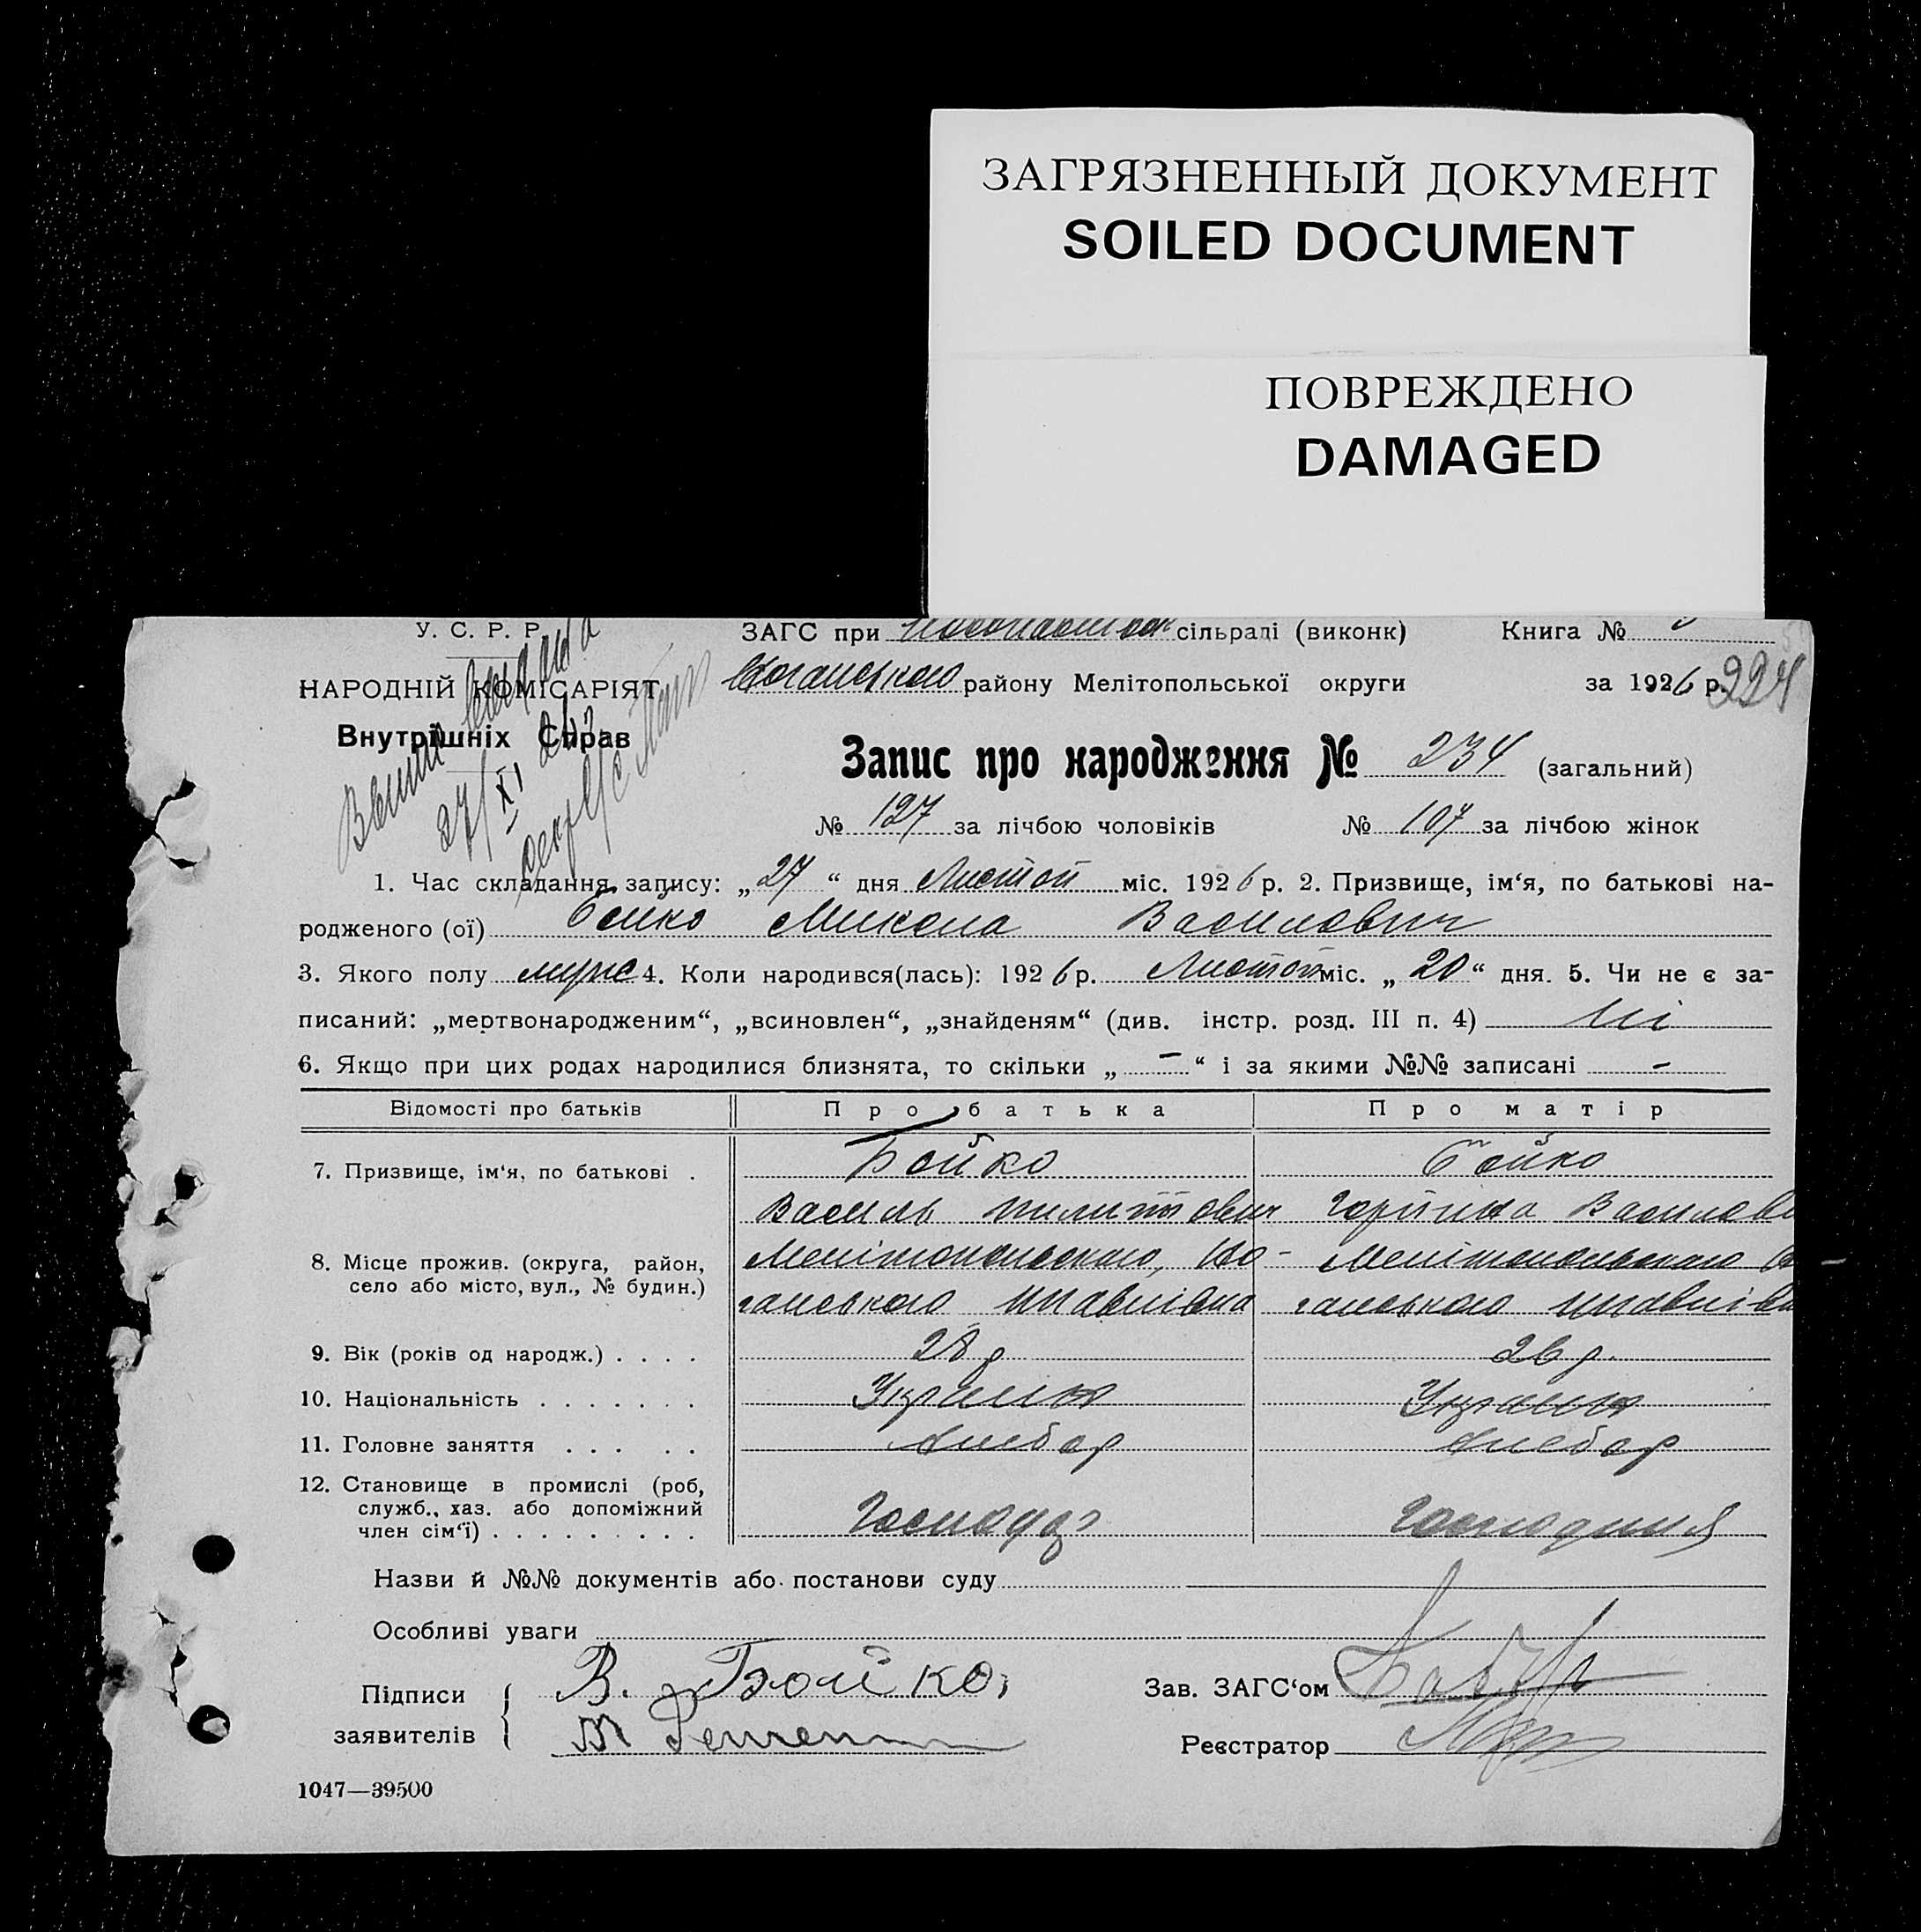 ЗАГРЯЗНЕННЫЙ ДОКУМЕНТ
SOILED DOCUMENT
ПОВРЕЖДЕНО
DAMAGED
У. С. Р. Р.
НАРОДНІЙ КОМІСАРІЯТ
Внутрішніх Справ
27/XI
ЗАГС при сільраді (виконк) Книга №
району Мелітопольської округи за 1926 р. 224
Запис про народження № 234 (загальний)
№ 127 за лічбою чоловіків № 107 за лічбою жінок
1. Час складання запису: „27“ дня Листоп міс. 1926 р. 2. Призвище, ім‘я, по батькові на-
родженого (ої) Бойко Микола Василович
3. Якого полу муже 4. Коли народився(лась): 1926 р. Листоп міс. „20“ дня. 5. Чи не є за-
писаний: „мертвонародженим“, „всиновлен“, „знайденям“ (див. інстр. розд. III п. 4) Ні
6. Якщо при цих родах народилися близнята, то скільки „ – “ і за якими №№ записані –
Відомості про батьків Про батька Про матір
7. Призвище, ім‘я, по батькові . Бойко Бойко
Василь Василов
8. Місце прожив. (округа, район,
село або місто, вул., № будин.)
Мелітопольского, Мелітопольского
9. Вік (років од народж.) . . . . 28 р 26 р.
10. Національність . . . . . . . Украин Украин
11. Головне заняття . . . . . Хлебор Хлебор
12. Становище в промислі (роб,
служб., хаз. або допоміжний
член сім‘ї) . . . . . . . . . Господар Господиня
Назви й №№ документів або постанови суду
Особливі уваги
Підписи
заявителів
В. Бойко
Зав. ЗАГС‘ом
Реєстратор
1047—39500